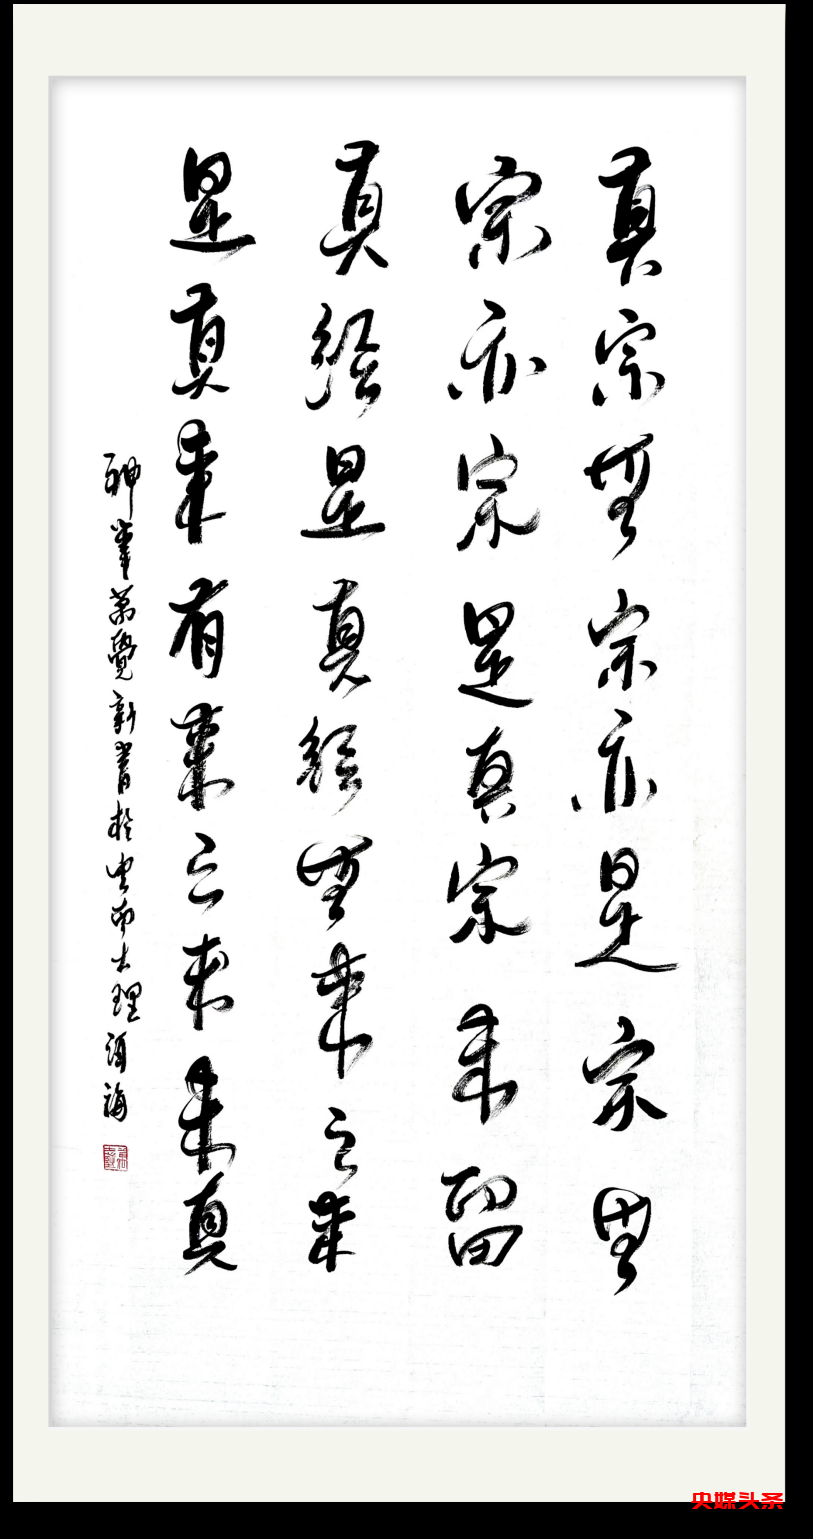 真宗無宗亦是宗無
宗亦宗是真宗来留
真經是真經無来之来
是真来有来之来来真
神筆萬覺新書於雲南大理洱海
央媒头条